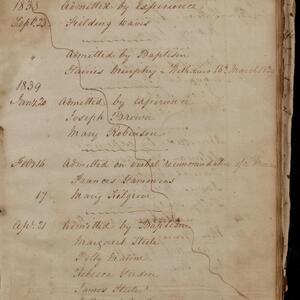 1833 Admitted by Experience
Sept. 23 Fielding
" Admitted by Baptism
James Murphy - Withdrawn 14th March
1839
Jany. 20 Admitted by experience
Joseph Brown
Mary Robinson
Feb. 16 Admitted on verbal recommendation of
Frances Hammons
17 Mary Kilgore
Apr. 21 Admitted by Baptism
Margaret Steele
Polly
Rebecca
James Steele